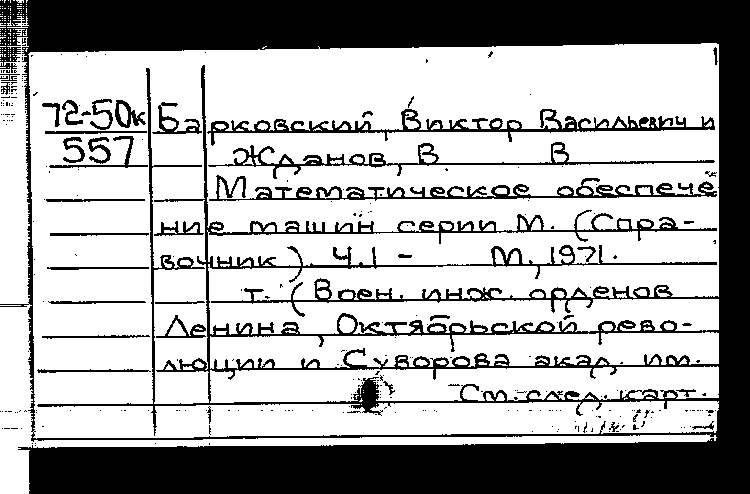 72-50к Барковский, Виктор Васильевич и
557 Жданов, В В
Математическое обеспече
ние машин серии М. (Спра-
вочник). Ч.1 - М., 1971.
т. (Воен. инж. орденов
Ленина, Октябрьской рево-
люции и Суворова акад. им.
См. след. карт.